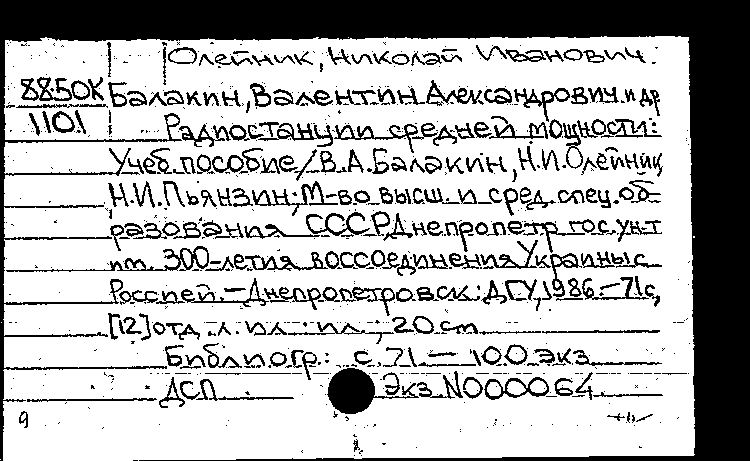 Олейник, Николай Иванович.
8850К Балакин, Валентин Александрович и др
1101 Радиостанции средней мощности:
Учеб. пособие / В.А. Балакин, Н.И. Олейник,
Н.И. Пьянзин; М-во высш. и сред. спец. об-
разования СССР, Днепропетр. гос. ун-т
им. 300-летия воссоединения Украины с
Россией. — Днепропетровск: ДГУ, 1986. — 71с,
[12] отд. л. ил.: ил.; 20 см
Библиогр.: с. 71 — 100 экз.
ДСП Экз N0000064
9